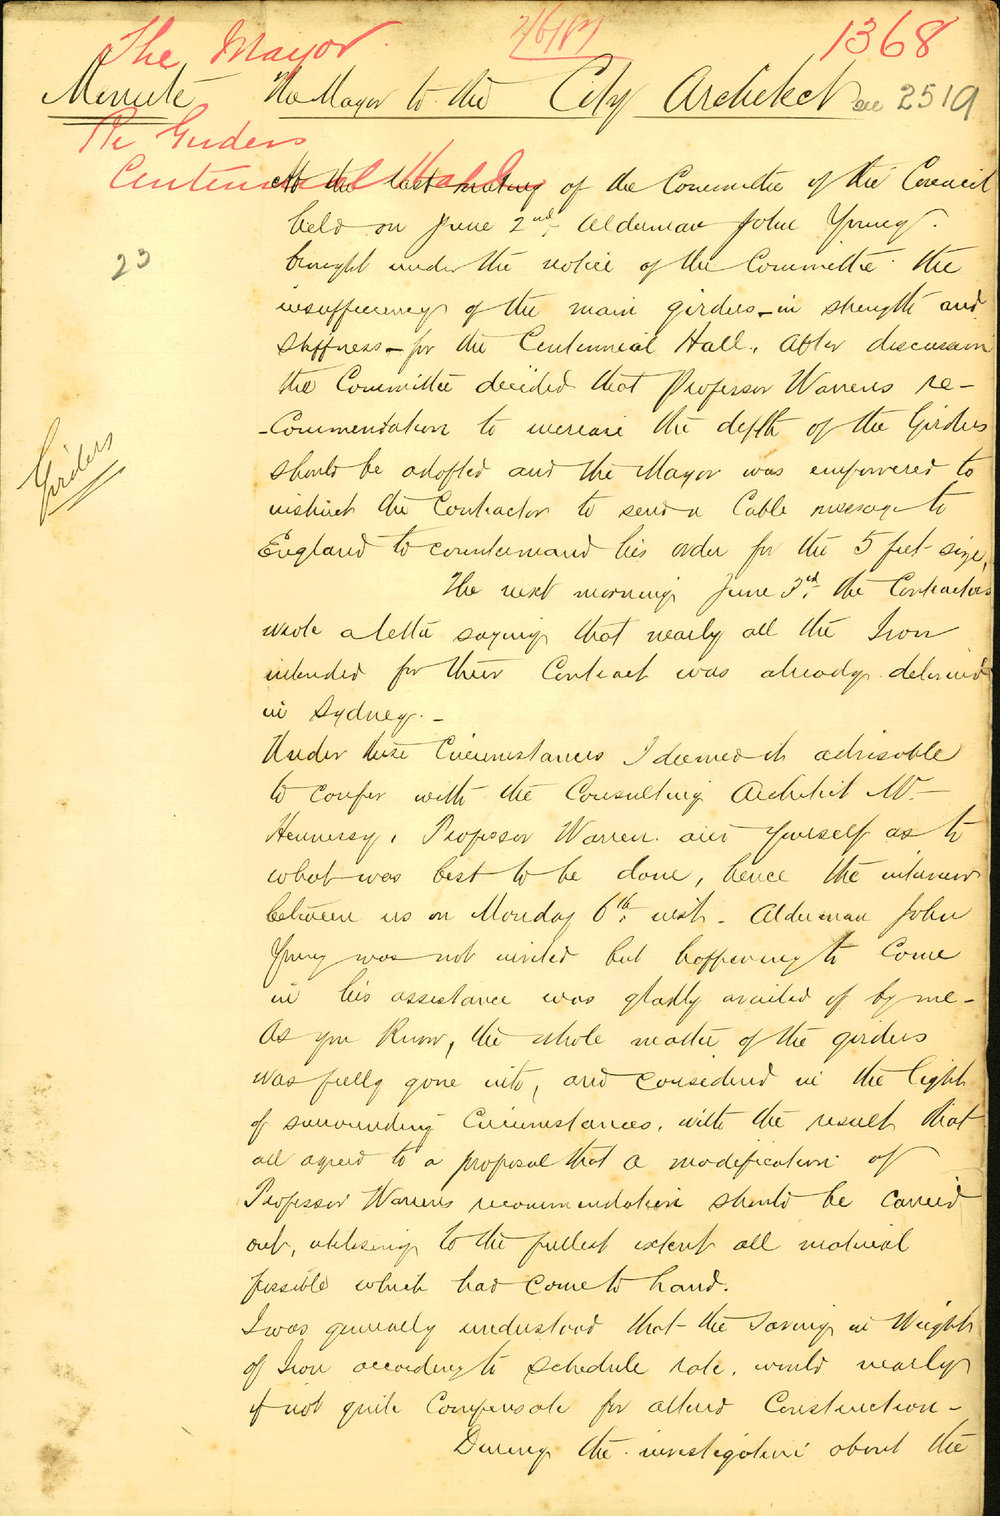 The Mayor
1368
Minute The Mayor to the City Architect
2519
Re Girders
Centennial Hall
At the last meeting of the Committee of the Council
held on June 2nd, Alderman John Young.
brought under the notice of the Committee the
insufficiency of the main girders - in strength and
stiffness - for the Centennial Hall. After discussion
the Committee decided that Professor Warrens re-
-commendation to increase the depth of the Girders
should be adopted and the Mayor was empowered to
instruct the Contractor to send a Cable message to
England to countermand his order for the 5 feet size,
The next morning June 3rd. the Contractors
wrote a letter saying that nearly all the Iron
intended for their Contract was already delivered
in Sydney. -
Under these Circumstances I deemed it advisable
to confer with the Consulting Architect Mr
Hennessy, Professor Warren and Yourself as to
what was best to be done, hence the interview
between us on Monday 6th. inst. Alderman John
Young was not invited but happening to Come
in his assistance was gladly availed of by me -
As you Know, the whole matter of the girders
was fully gone into, and considered in the light
of surrounding Circumstances, with the result that
all agreed to a proposal that a modification of
Professor Warrens recommendation should be carried
out, utilising to the fullest extent all material
possible which had come to hand.
I was generally understood that the saving in Weight
of Iron according to schedule rate, would nearly
if not quite Compensate for altered Construction -
During the investigations about the
23
Girders